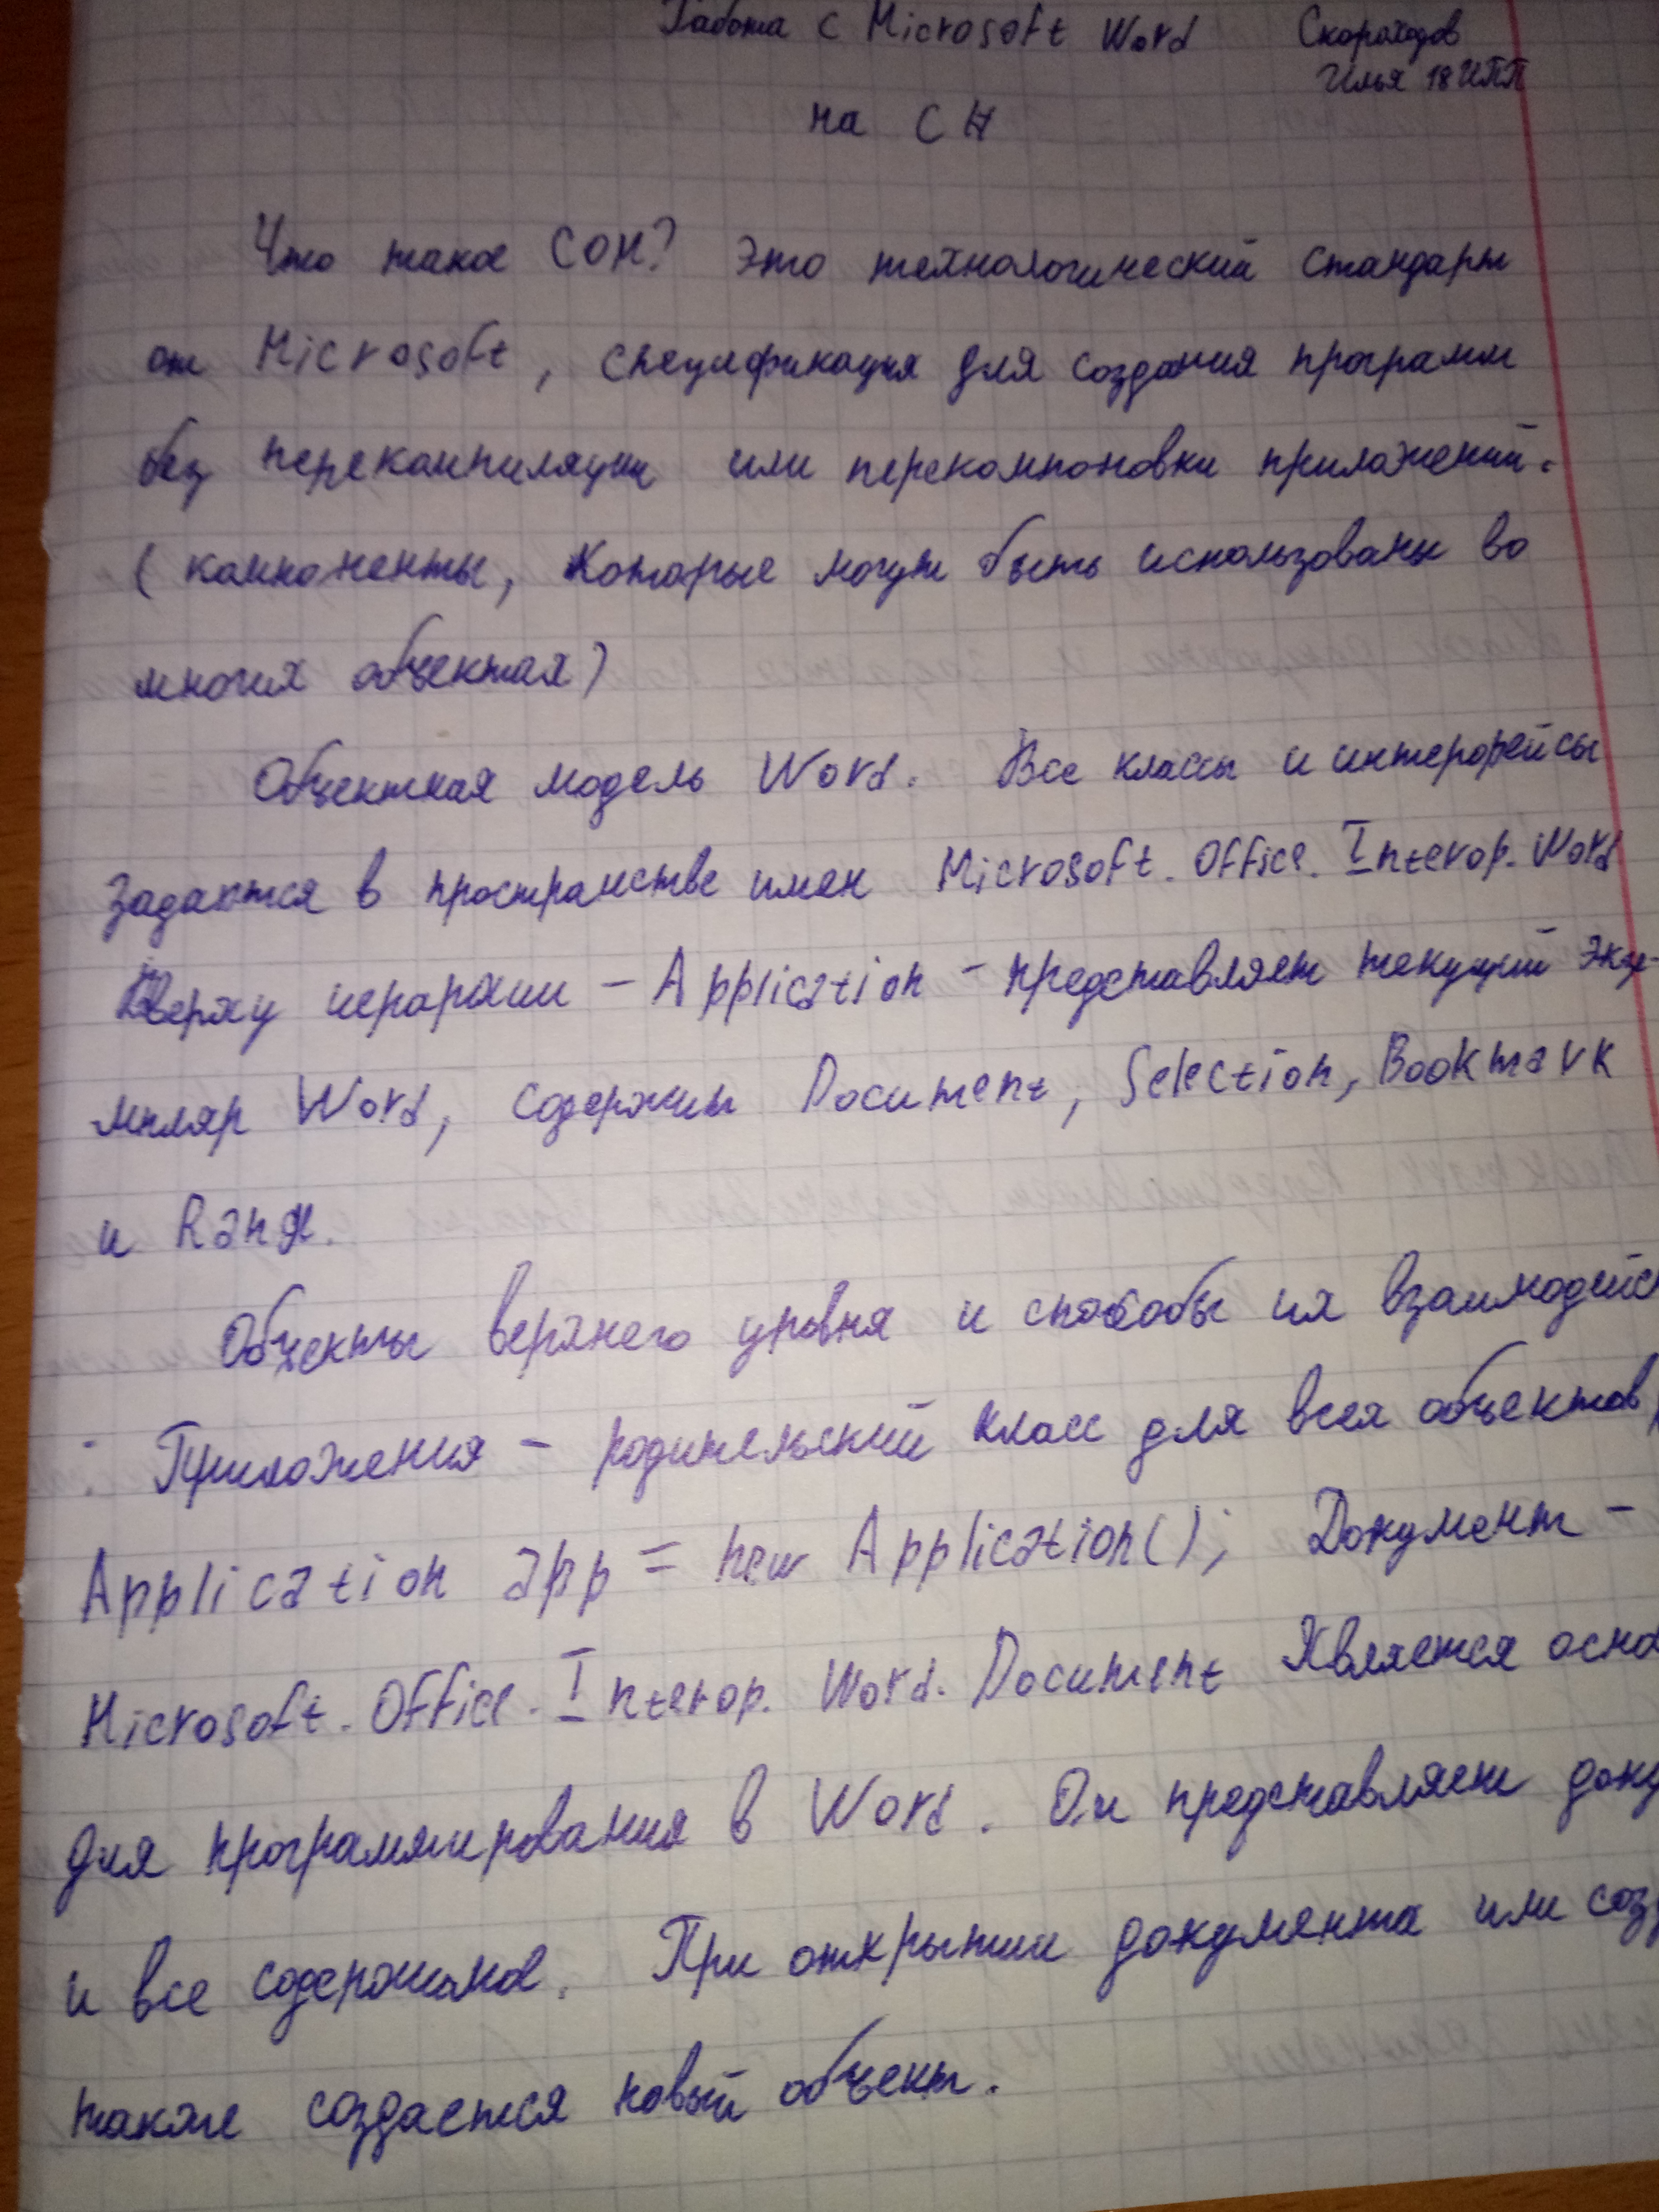 Работа с Microsoft Word Скороходов
Илья 18ИПП
на C#
Что такое COM? Это технологический стандарт
от Microsoft, спецификация для создания программ
без перекомпиляции или перекомпоновки приложений.
(компоненты, которые могут быть использованы во
многих объектах)
Объектная модель Word. Все классы и интерфейсы
задаются в пространстве имен Microsoft.Office.Interop.Word
Вверху иерархии - Application - представляет текущий экзе-
мпляр Word, содержит Document, Selection, Bookmark
и Range.
Объекты верхнего уровня и способы их взаимодейс
: Приложения - родительский класс для всех объектов
Application app = new Application(); Документ -
Microsoft.Office.Interop.Word.Document Является осно
для программирования в Word. Он представляет доку
и все содержимое. При открытии документа или созд
также создается новый объект.